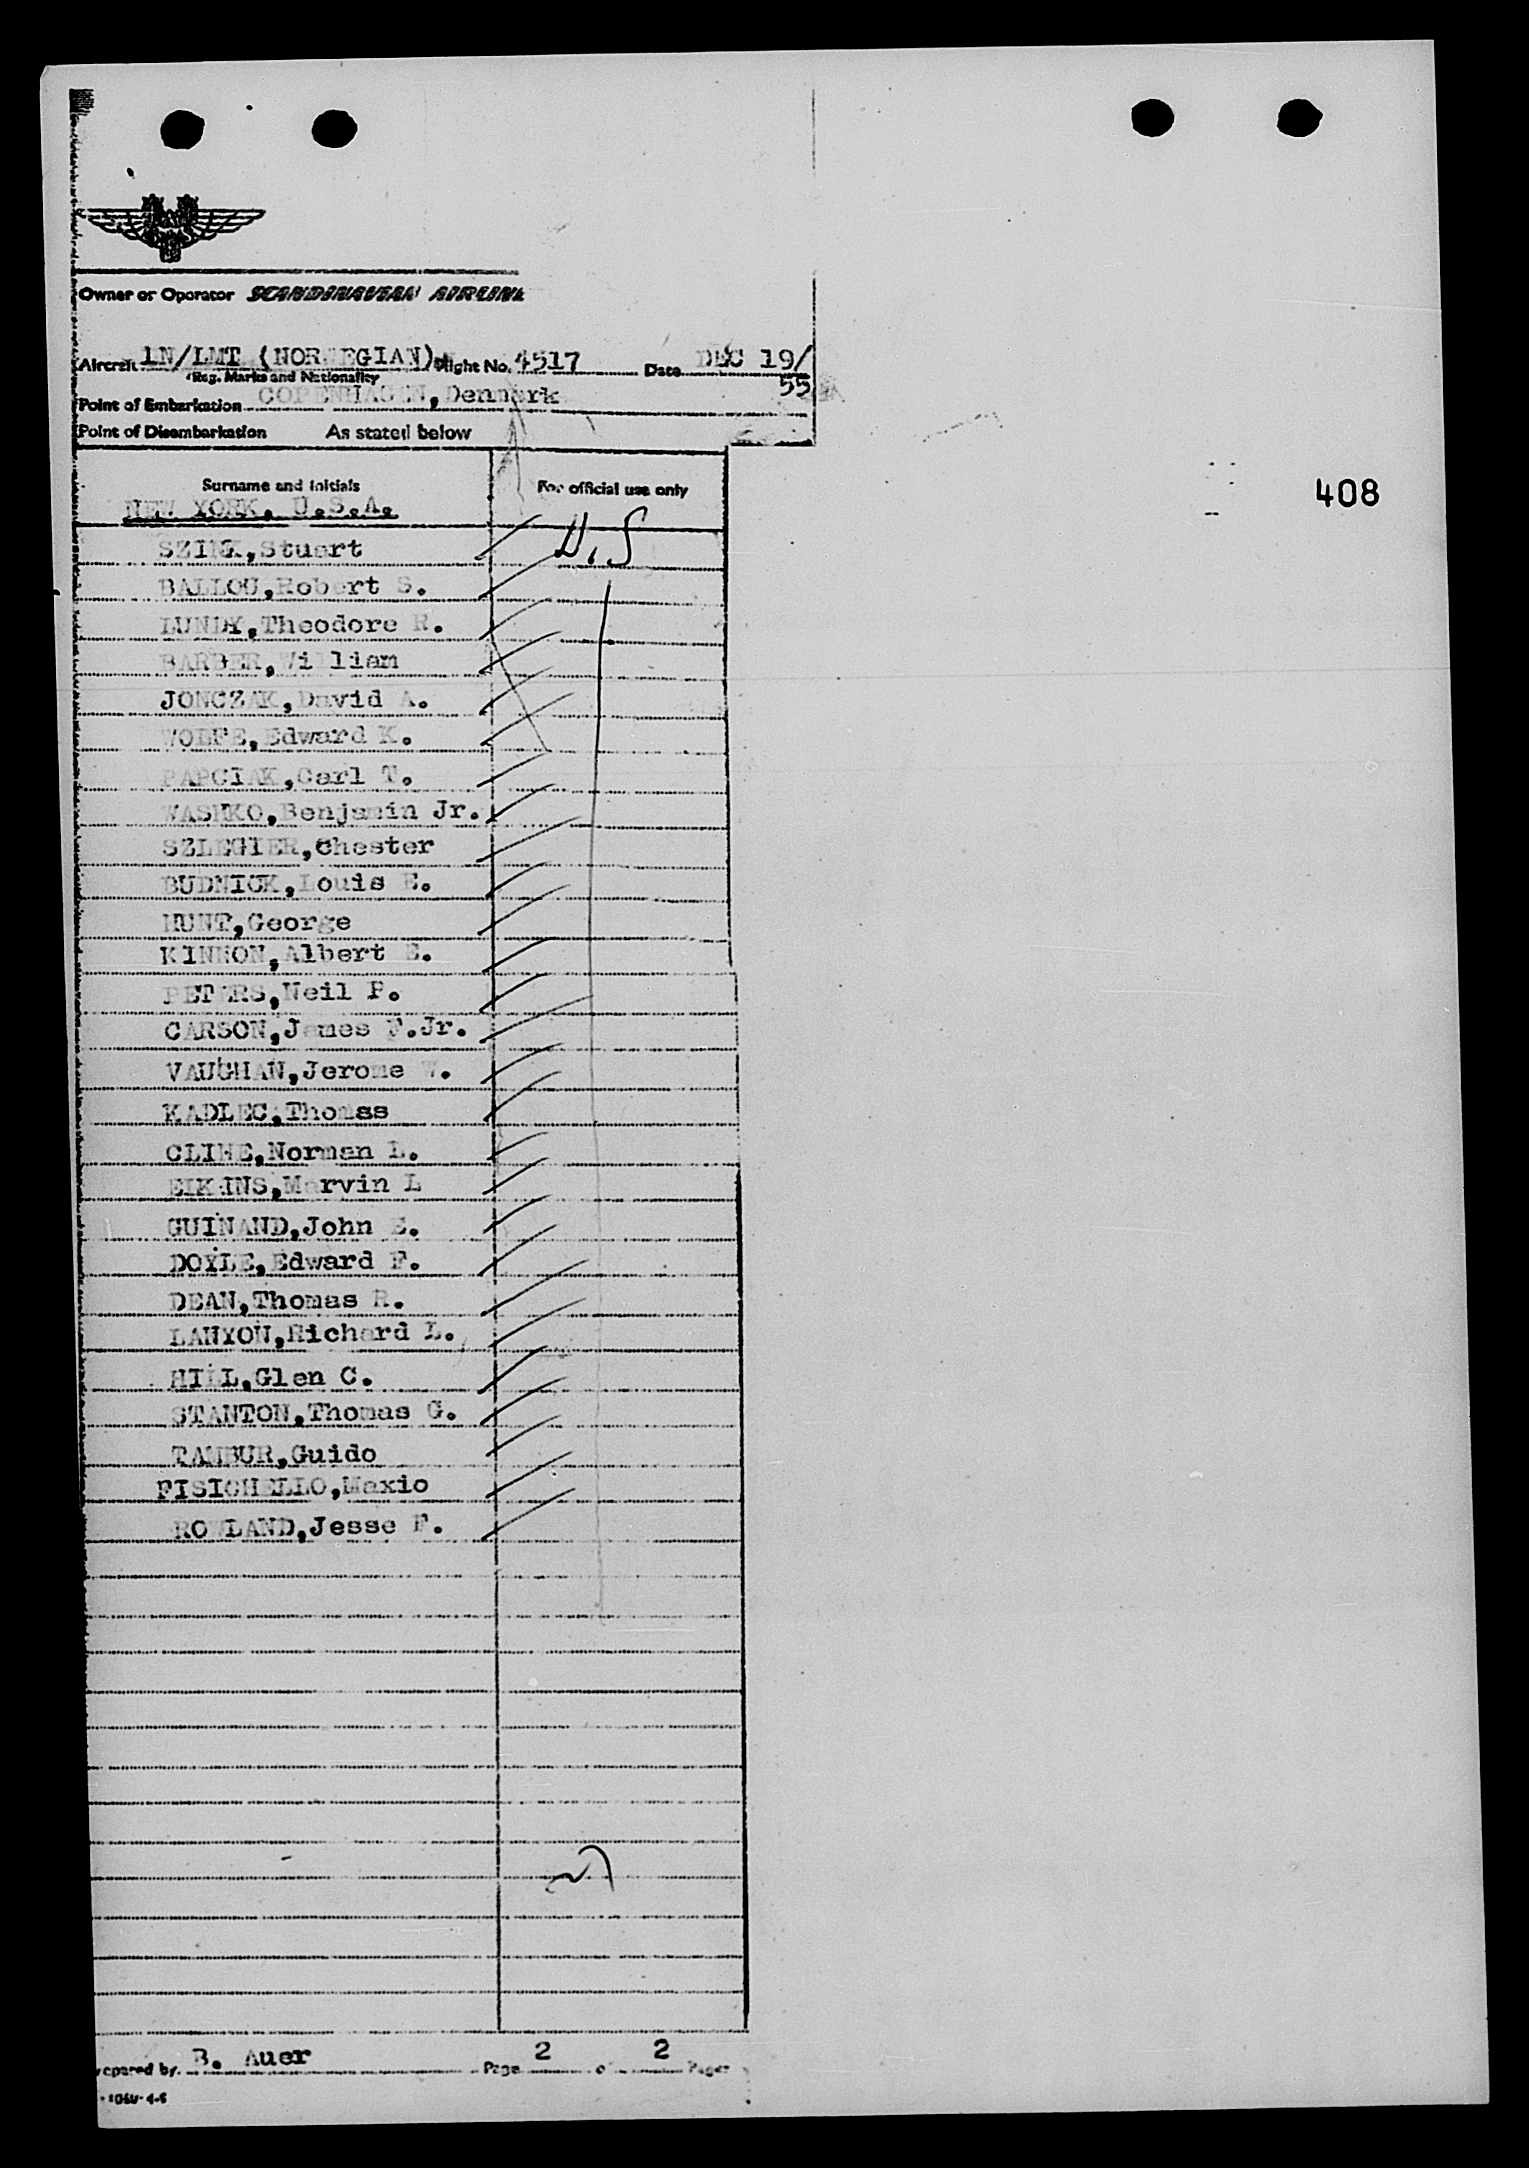 Owner or Operator SCANDINAVIAN AIRLINE
Aircraft LN/LMT (NORWEGIAN) Flight No. 4517 Date DEC 19/
Reg. Marks and Nationality 55
Point of Embarkation COPENHAGEN, Denmark
Point of Disembarkation As stated below
Surname and Initials For official use only
NEW YORK, U.S.A.
408
Stuart U.S
BALLOU, Robert S.
LUNDY, Theodore R.
BARBER, William
JONCZAK, David A.
WOLFE, Edward K.
PAPCIAK, Carl T.
WASHKO, Benjamin Jr.
SZLEGIER, Chester
BUDNICK, Louis E.
HUNT, George
Albert E.
PETERS, Neil P.
CARSON, James F. Jr.
VAUGHAN, Jerome W.
KADLEC, Thomas
CLINE, Norman L.
Marvin L
GUINAND, John E.
DOYLE, Edward F.
DEAN, Thomas R.
LANYON, Richard L.
HILL, Glen C.
STANTON, Thomas G.
TAMBUR, Guido
FISICHELLO, Maxio
ROWLAND, Jesse F.
Prepared by B. Auer Page 2 of 2 Pages